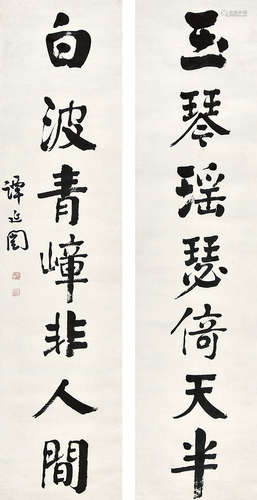 玉琴瑶瑟倚天半
白波青嶂非人間
譚延闓